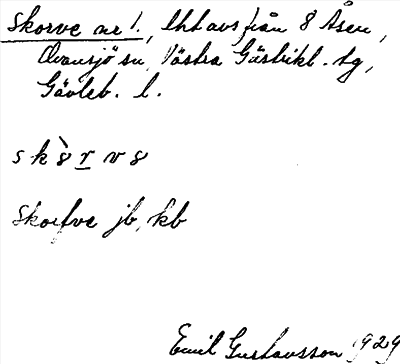 Skorve nr 1., lht avs från 8 Åsen,
Ovansjö sn, Västra Gästrikl. tg,
Gävleb. l.
sk8̀rv8
Skorfve jb, kb
Emil Gustavsson 1929